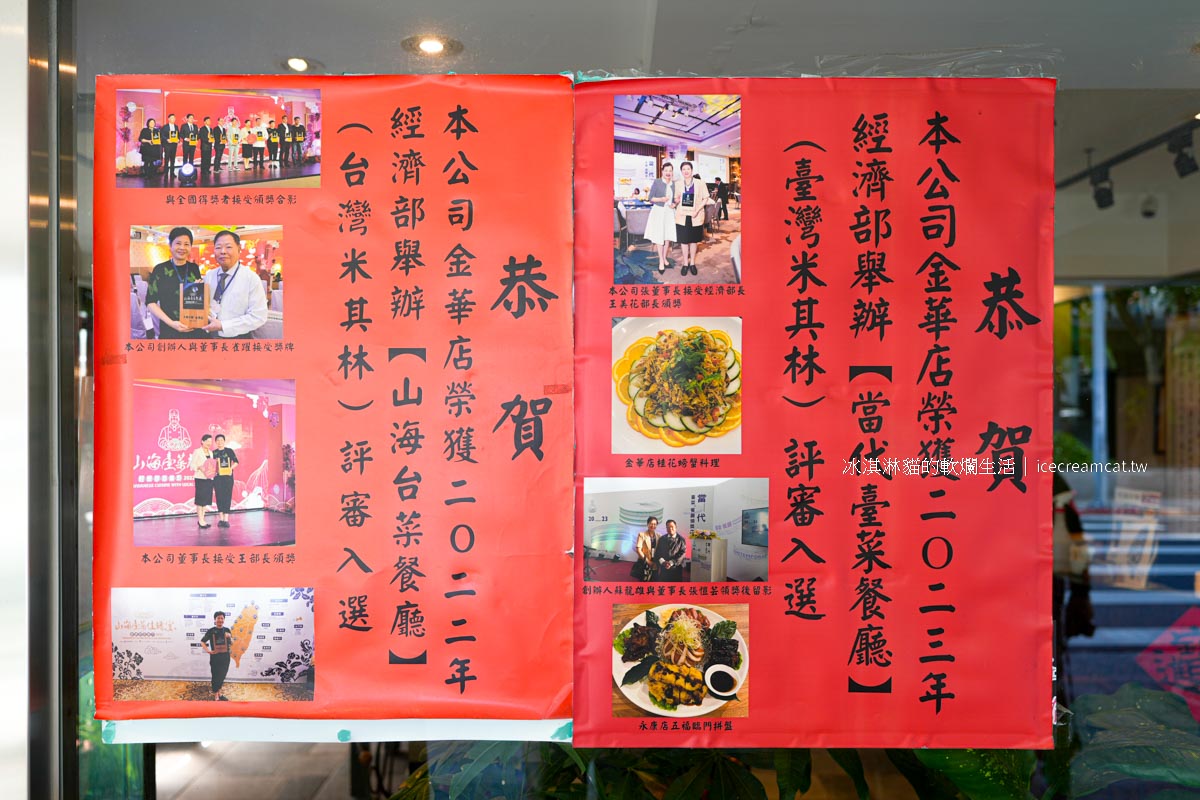 恭賀
本公司金華店榮獲二〇二三年
經濟部舉辦【當代臺菜餐廳】
（臺灣米其林）評審入選
本公司張董事長接受經濟部長
王美花部長頒獎
金華店桂花螃蟹料理
創辦人蘇龍雄與董事長張恒芸領獎後留影
永康店五福臨門拼盤
當代
20
23
恭賀
本公司金華店榮獲二〇二二年
經濟部舉辦【山海台菜餐廳】
（台灣米其林）評審入選
與全國得獎者接受頒獎合影
本公司創辦人與董事長雀躍接受獎牌
本公司董事長接受王部長頒獎
冰淇淋貓的軟爛生活｜icecreamcat.tw